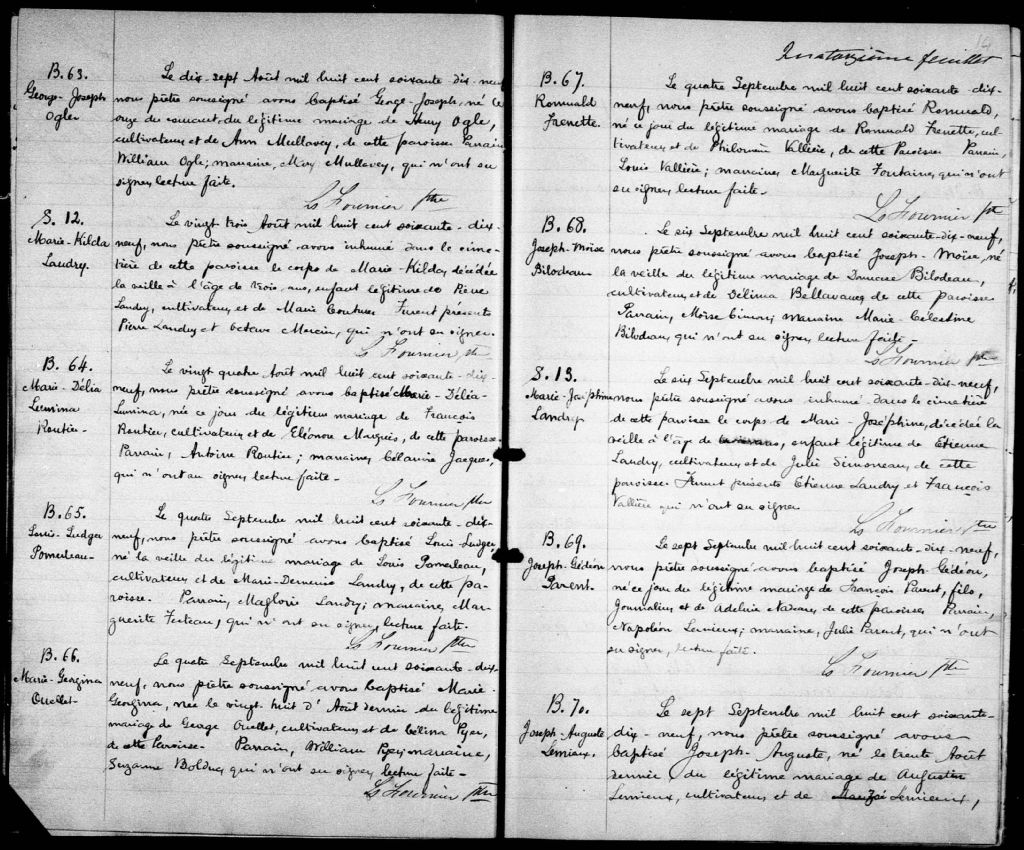 B. 63.
George-Joseph
Ogle
Le dix-sept Août mil huit cent soixante-dix-neuf
nous prêtre soussigné avons baptisé George-Joseph, né le
onze du courant, du légitime mariage de Henry Ogle,
cultivateur, et de Ann Mullavey, de cette paroisse Parrain
William Ogle; marraine, Mary Mullavey, qui n'ont su
signer, lecture faite.
Ls Fournier Ptre
S. 12.
Marie-Kilda
Landry.
Le vingt trois Août mil huit cent soixante-dix-
neuf, nous prêtre soussigné avons inhumé dans le cime-
tière de cette paroisse le corps de Marie-Kilda, décédée
la veille à l'âge de trois ans, enfant légitime de Pierre
Landry, cultivateur, et de Marie Couture Furent présents
Pierre Landry et Octave Mercier, qui n'ont su signer.
Ls Fournier Ptre
B. 64.
Marie-Délia
Lumina
Routier-
Le vingt quatre Août mil huit cent soixante-dix-
neuf, nous prêtre soussigné avons baptisé Marie-Délia-
Lumina, née ce jour du légitime mariage de François
Routier, cultivateur, et de Eléonore Marguis, de cette paroisse
Parrain, Antoine Routier; marraine, Célanire Jacques,
qui n'ont su signer, lecture faite-
Ls Fournier Ptre
B. 65.
Louis-Ludger
Pomerleau-
Le quatre Septembre mil huit cent soixante-dix-
neuf, nous prêtre soussigné avons baptisé Louis-Ludger,
né la veille du légitime mariage de Louis Pomerleau,
cultivateur, et de Marie-Demerise Landry, de cette pa-
roisse. Parrain, Magloire Landry; marraine, Mar-
guerite Fecteau, qui n'ont su signer, lecture faite.
Ls Fournier Ptre
B. 66.
Marie-Georgina
Ouellet-
Le quatre Septembre mil huit cent soixante-dix-
neuf, nous prêtre soussigné avons baptisé Marie-
Georgina, née le vingt-huit d'Août dernier du légitime
mariage de George Ouellet, cultivateur, et de Célina
de cette Paroisse- Parrain, William marraine,
Suzanne Bolduc, qui n'ont su signer, lecture faite-
Ls Fournier Ptre
Quatorzième feuillet
B. 67.
Romuald
Frenette.
Le quatre Septembre mil huit cent soixante dix-
neuf, nous prêtre soussigné avons baptisé Romuald,
né ce jour du légitime mariage de Romuald Frenette, cul-
tivateur, et de Philomène Vallière, de cette Paroisse Parrain,
Louis Vallière; marraine, Marguerite Fontaine, qui n'ont
su signer, lecture faite-
Ls Fournier Ptre
B. 68.
Joseph-Moïse
Bilodeau
Le six Septembre mil huit cent soixante-dix-neuf,
nous prêtre soussigné avons baptisé Joseph-Moïse, né
la veille du légitime mariage de Bilodeau,
cultivateur, et de Délima Bellavance de cette paroisse
Parrain, Moïse marraine Marie-Célestine
Bilodeau, qui n'ont su signer, lecture faite-
Ls Fournier Ptre
S. 13.
Marie-Joséphine
Landry
Le six Septembre mil huit cent soixante-dix-neuf,
nous prêtre soussigné avons inhumé dans le cimetière
de cette paroisse le corps de Marie-Joséphine, décédée la
veille à l'âge de enfant légitime de Etienne
Landry, cultivateur, et de Julie Simoneau, de cette
paroisse. Furent présents Etienne Landry et François
Vallière qui n'ont su signer
Ls Fournier, Ptre
B. 69.
Joseph-Gédéon
Parent.
Le sept Septembre mil-huit cent soixante-dix-neuf,
nous prêtre soussigné avons baptisé Joseph-Gédéon,
né ce jour du légitime mariage de François Parent, fils,
Journalier, et de Adeline Nadeau, de cette paroisse Parrain,
Napoléon Lemieux; marraine, Julie Parent, qui n'ont
su signer, lecture faite.
Ls Fournier Ptre
B. 70.
Joseph-Auguste
Lemieux.
Le sept Septembre mil huit cent soixante-
dix-neuf, nous prêtre soussigné avons
baptisé Joseph-Auguste, né le trente Août
dernier, du légitime mariage de Augustin
Lemieux, cultivateur, et de Lemieux,